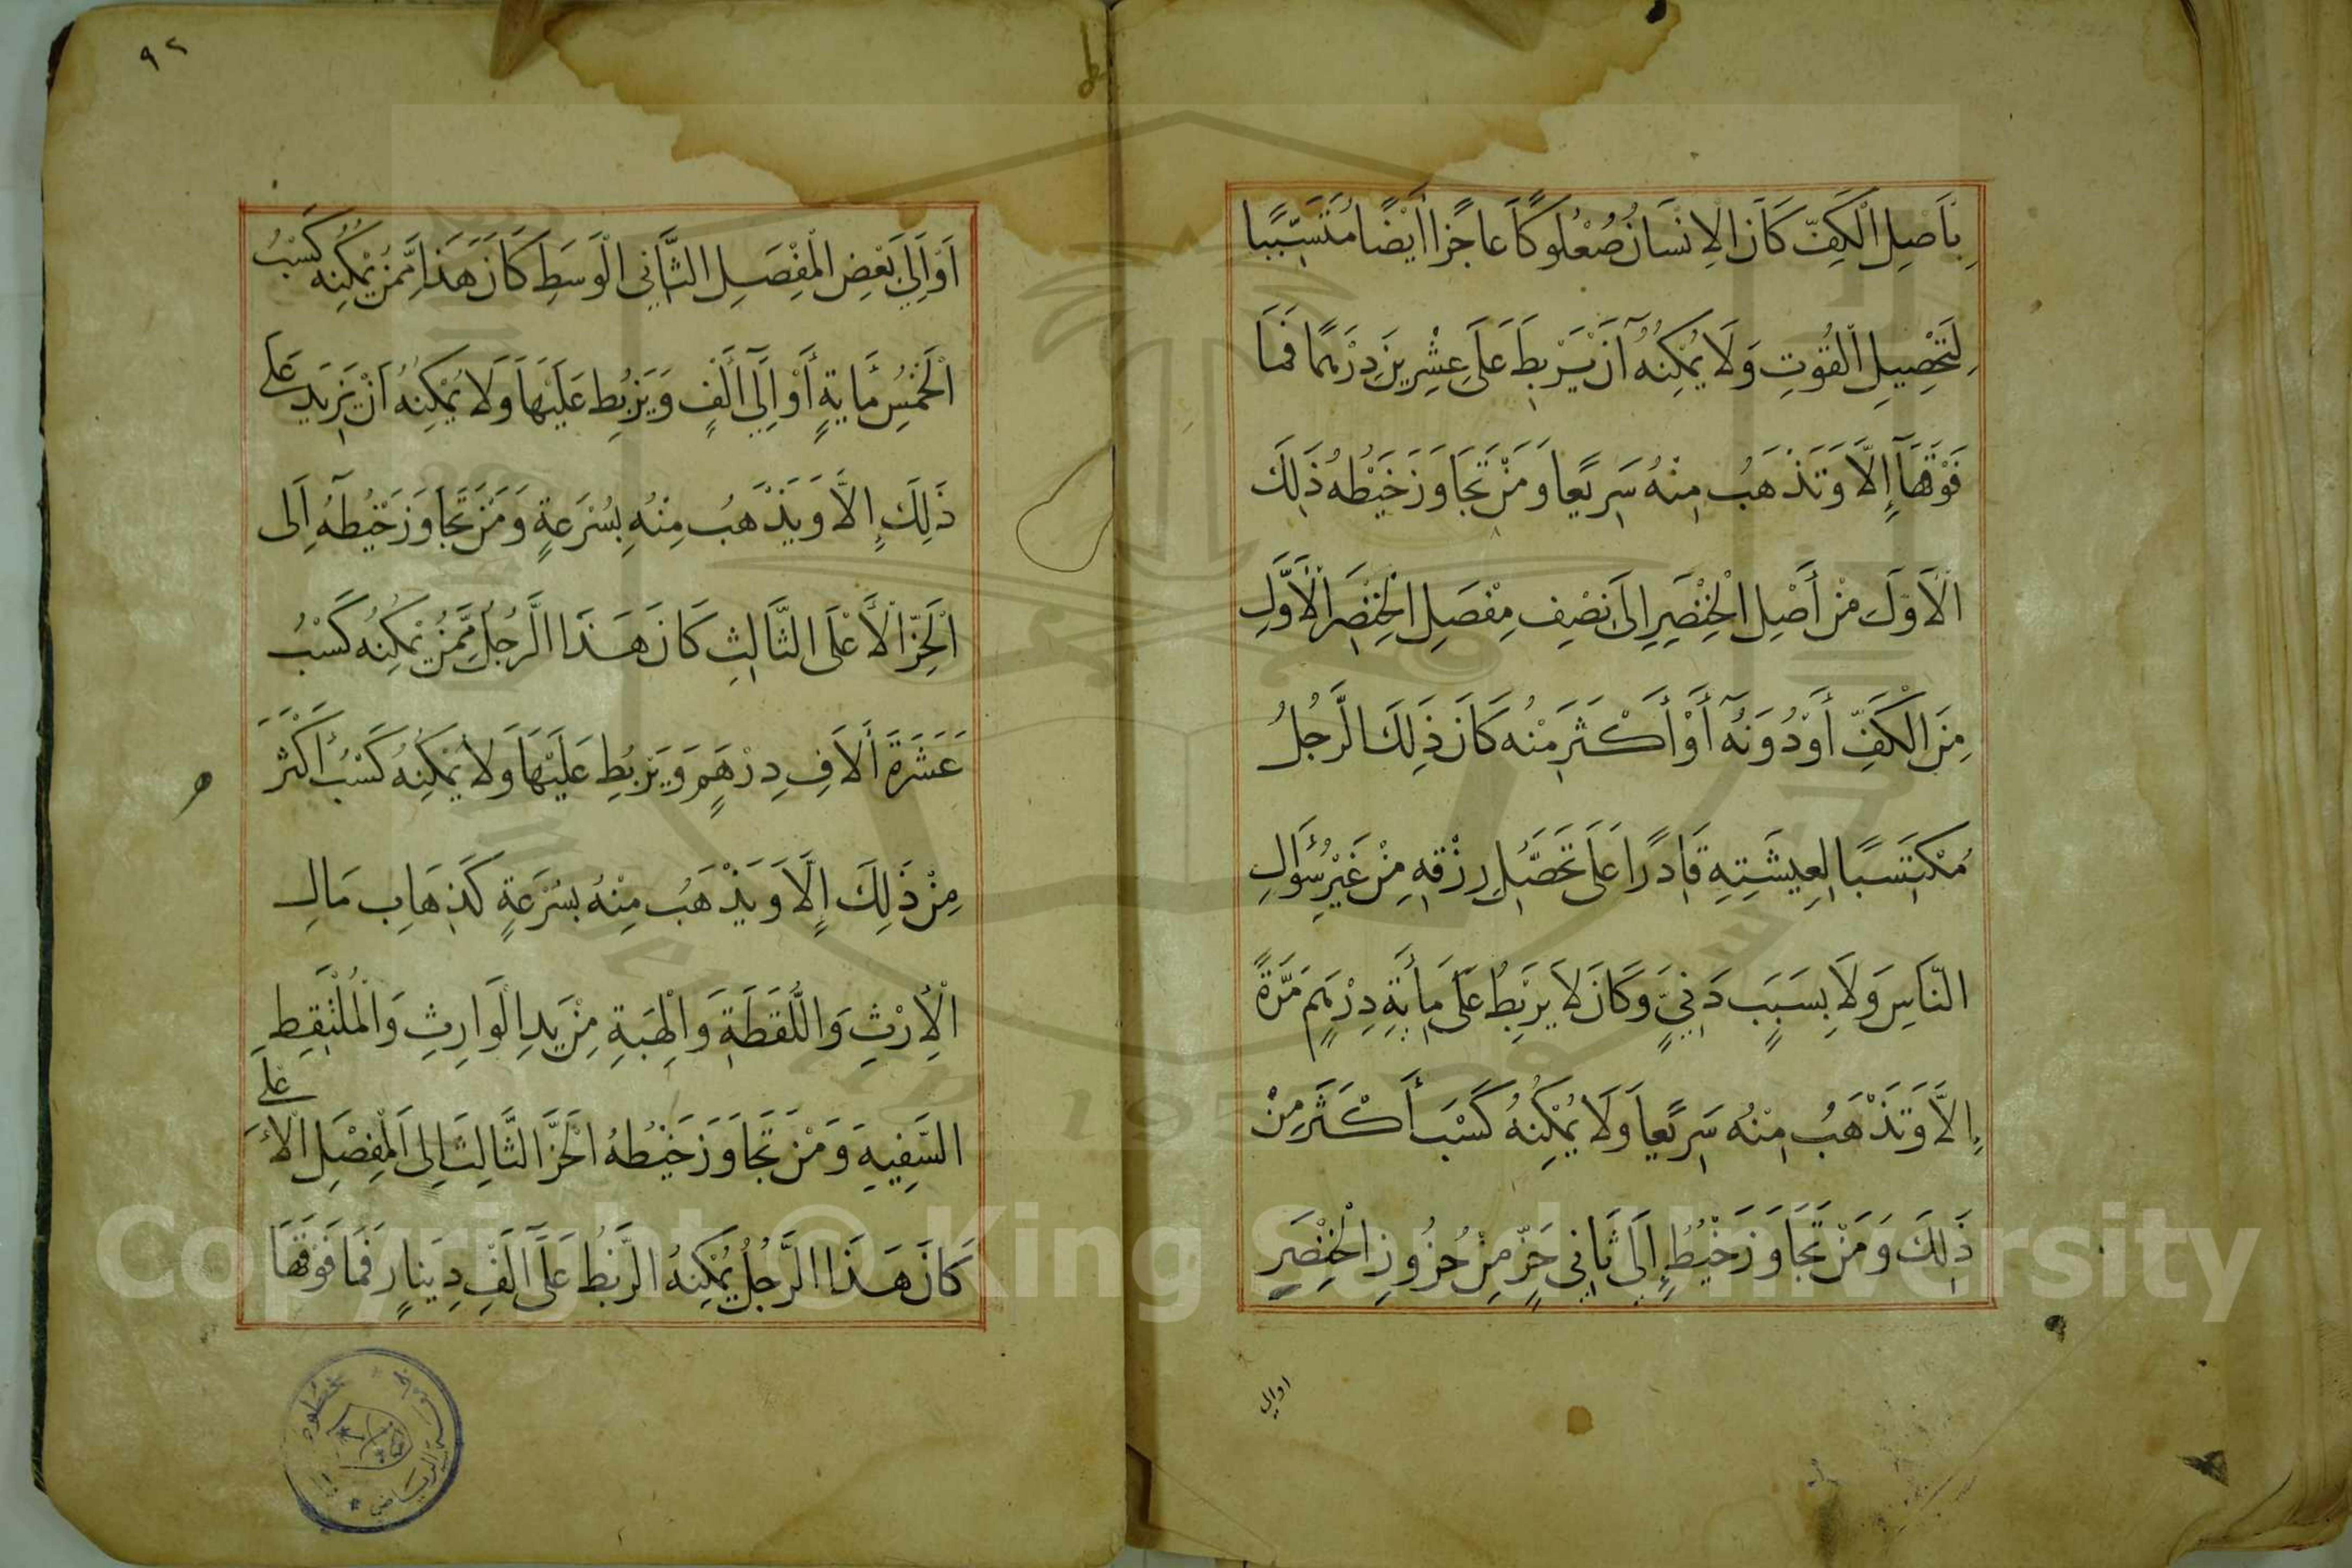 بِأَصِلِ الْكَفِّ كَانَ الْاِنْسَانُ صُعْلُوكًا عَاجِزًا أَيْضًا مُتَسَبِّبًا
لِتَحْصِيلِ الْقُوتِ وَلَا يُمْكِنُهُ أَنْ يَرْبِطَ عَلَى عِشْرِينَ دِرْهَمًا فَمَا
فَوْقَهَا إِلَّا وَتَذْهَبُ مِنْهُ سَرِيعًا وَمَنْ تَجَاوَزَ خَيْطُهُ ذَلِكَ
الْأَوَّلَ مِنْ أَصْلِ الْخِنْصَرِ إِلَى نِصْفِ مِفْصَلِ الْخِنْصَرِ الْأَوَّلِ
مِنَ الْكَفِّ أَوْ دُونَهُ أَوْ أَكْثَرَ مِنْهُ كَانَ ذَلِكَ الرَّجُلُ
مُكْتَسَبًا لِعِيشَتِهِ قَادِرًا عَلَى تَحَصُّلِ رِزْقِهِ مِنْ غَيْرِ سُؤَالِ
النَّاسِ وَلَا بِسَبَبٍ دَنِيٍّ وَكَانَ لَا يَرْبِطُ عَلَى مِايَةِ دِرْهَمٍ مَرَّةً
إِلَّا وَتَذْهَبُ مِنْهُ سَرِيعًا وَلَا يُمْكِنُهُ كَسْبَ أَكْثَرَ مِنْ
ذَلِكَ وَمَنْ تَجَاوَزَ خَيْطُهُ إِلَى ثَانِي حَزٍّ مِنْ حُزُوزِ الْخِنْصَرِ
اوالى
٩٢
أَوْ إِلَى بَعْضِ الْمِفْصَلِ الثَّانِي الْوَسَطِ كَانَ هَذَا مِمَّنْ يُمْكِنُهُ كَسْبُ
الْخَمْسِ مِّايَةٍ أَوْ إِلَى أَلْفٍ وَيَرْبُطُ عَلَيْهَا وَلَا يُمْكِنُهُ أَنْ يَزِيدَ عَلَى
ذَلِكَ إِلَّا وَيَذْهَبُ مِنْهُ بِسُرْعَةٍ وَمَنْ تَجَاوَزَ خَيْطُهُ إِلَى
الْحَزِّ الْأَعْلَى الثَّالِثِ كَانَ هَذَا الرَّجُلُ مِمَّنْ يُمْكِنُهُ كَسْبُ
عَشَرَةَ أَلَافِ دِرْهَمٍ وَيَرْبُطِ عَلَيْهَا وَلَا يُمْكِنُهُ كَسْبُ أَكْثَرَ
مِنْ ذَلِكَ إِلَّا وَيَذْهَبُ مِنْهُ بِسُرْعَةٍ كَذِهَابِ مَالِ
الْأِرْثِ وَاللُّقَطَةِ وَالْهِبَةِ مِنْ يَدِ الْوَارِثِ وَالْمُلْتَقِطِ
السَّفِيهِ وَمَنْ تَجَاوَزَ خَيْطُهُ الْحَزَّ الثَّالِثَ إِلَى الْمِفْصَلِ الْأَعلى
كَانَ هَذَا الرَّجُلُ يُمْكِنُهُ الرَّبْطُ عَلَى أَلْفِ دِينَارٍ فَمَا فَوْقَهَا
Copyright © King Saud University